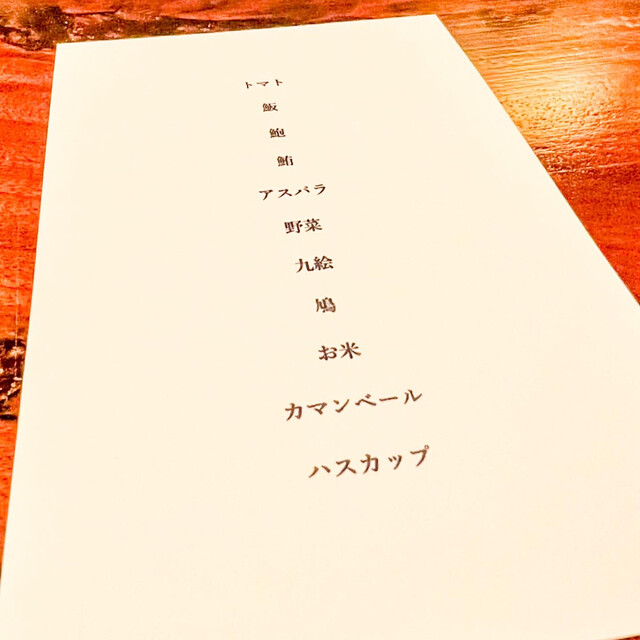 トマト
飯
鮑
鮪
アスパラ
野菜
九絵
鳩
お米
カマンベール
ハスカップ